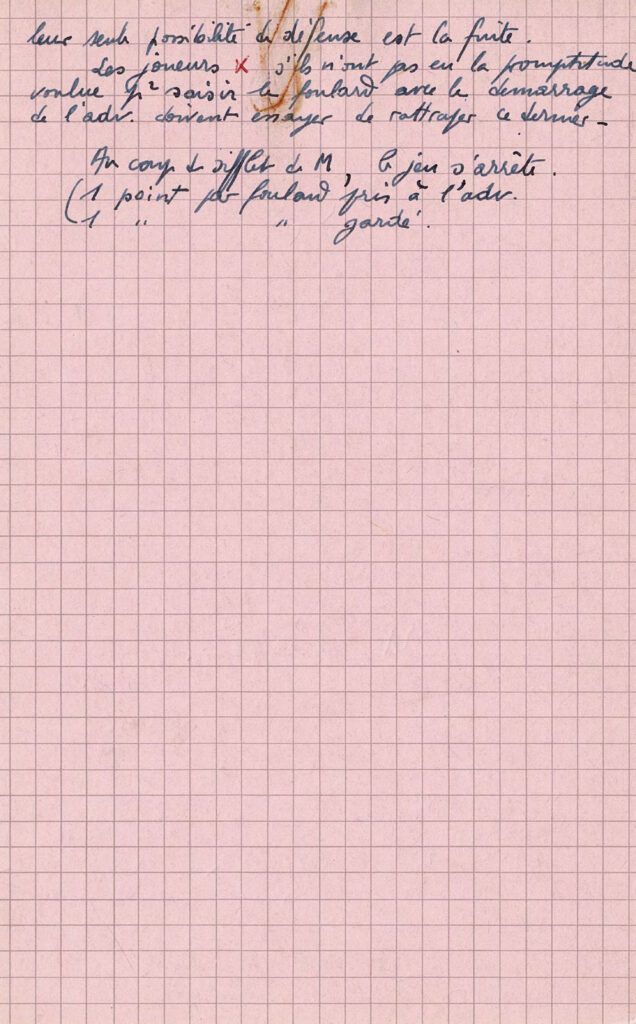 leur seule possibilité de défense est la fuite.
Les joueurs x s'ils n'ont pas eu la promptitude
voulue pr saisir le foulard avec le démarrage
de l'adv. doivent essayer de rattraper ce dernier –
Au coup de sifflet de M, le jeu s'arrête.
( 1 point par foulard pris à l'adv.
( 1 " " gardé.